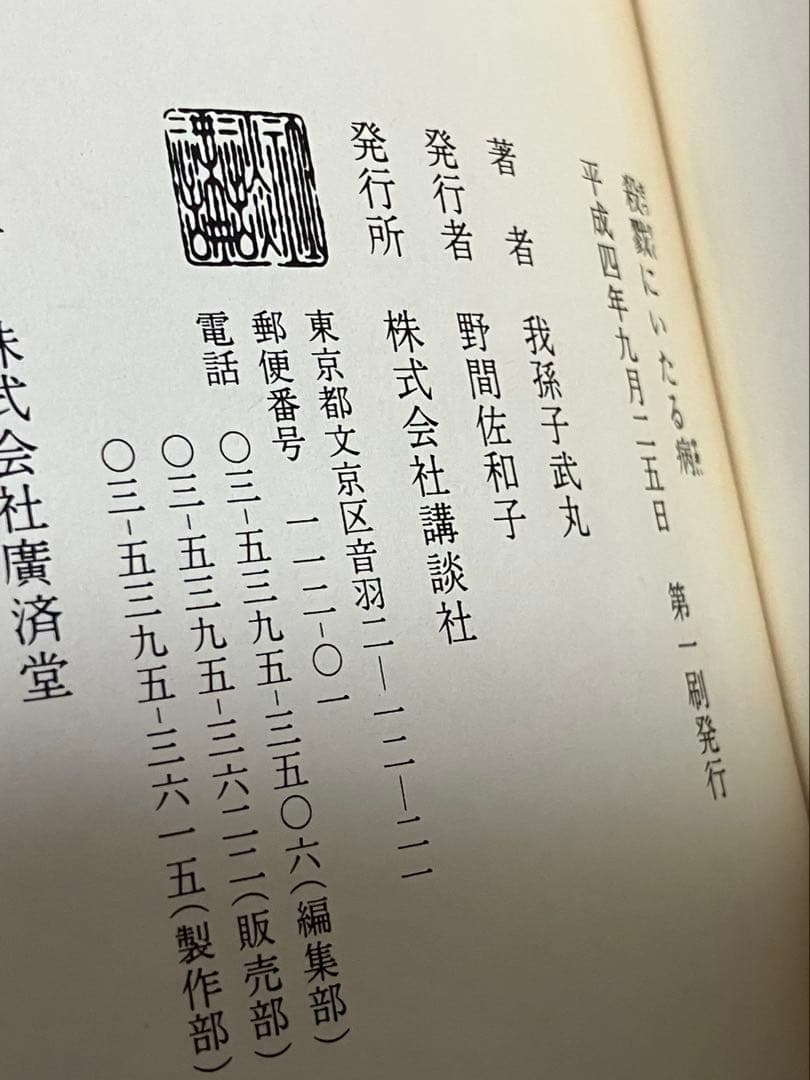 殺戮にいたる病
平成四年九月二五日　第一刷発行
著者　我孫子武丸
発行者　野間佐和子
発行所　株式会社講談社
東京都文京区音羽二―一二―二一
郵便番号　一一二-〇一
電話　〇三-五三九五-三五〇六(編集部)
〇三-五三九五-三六二二(販売部)
〇三-五三九五-三六一五(製作部)
株式会社廣済堂